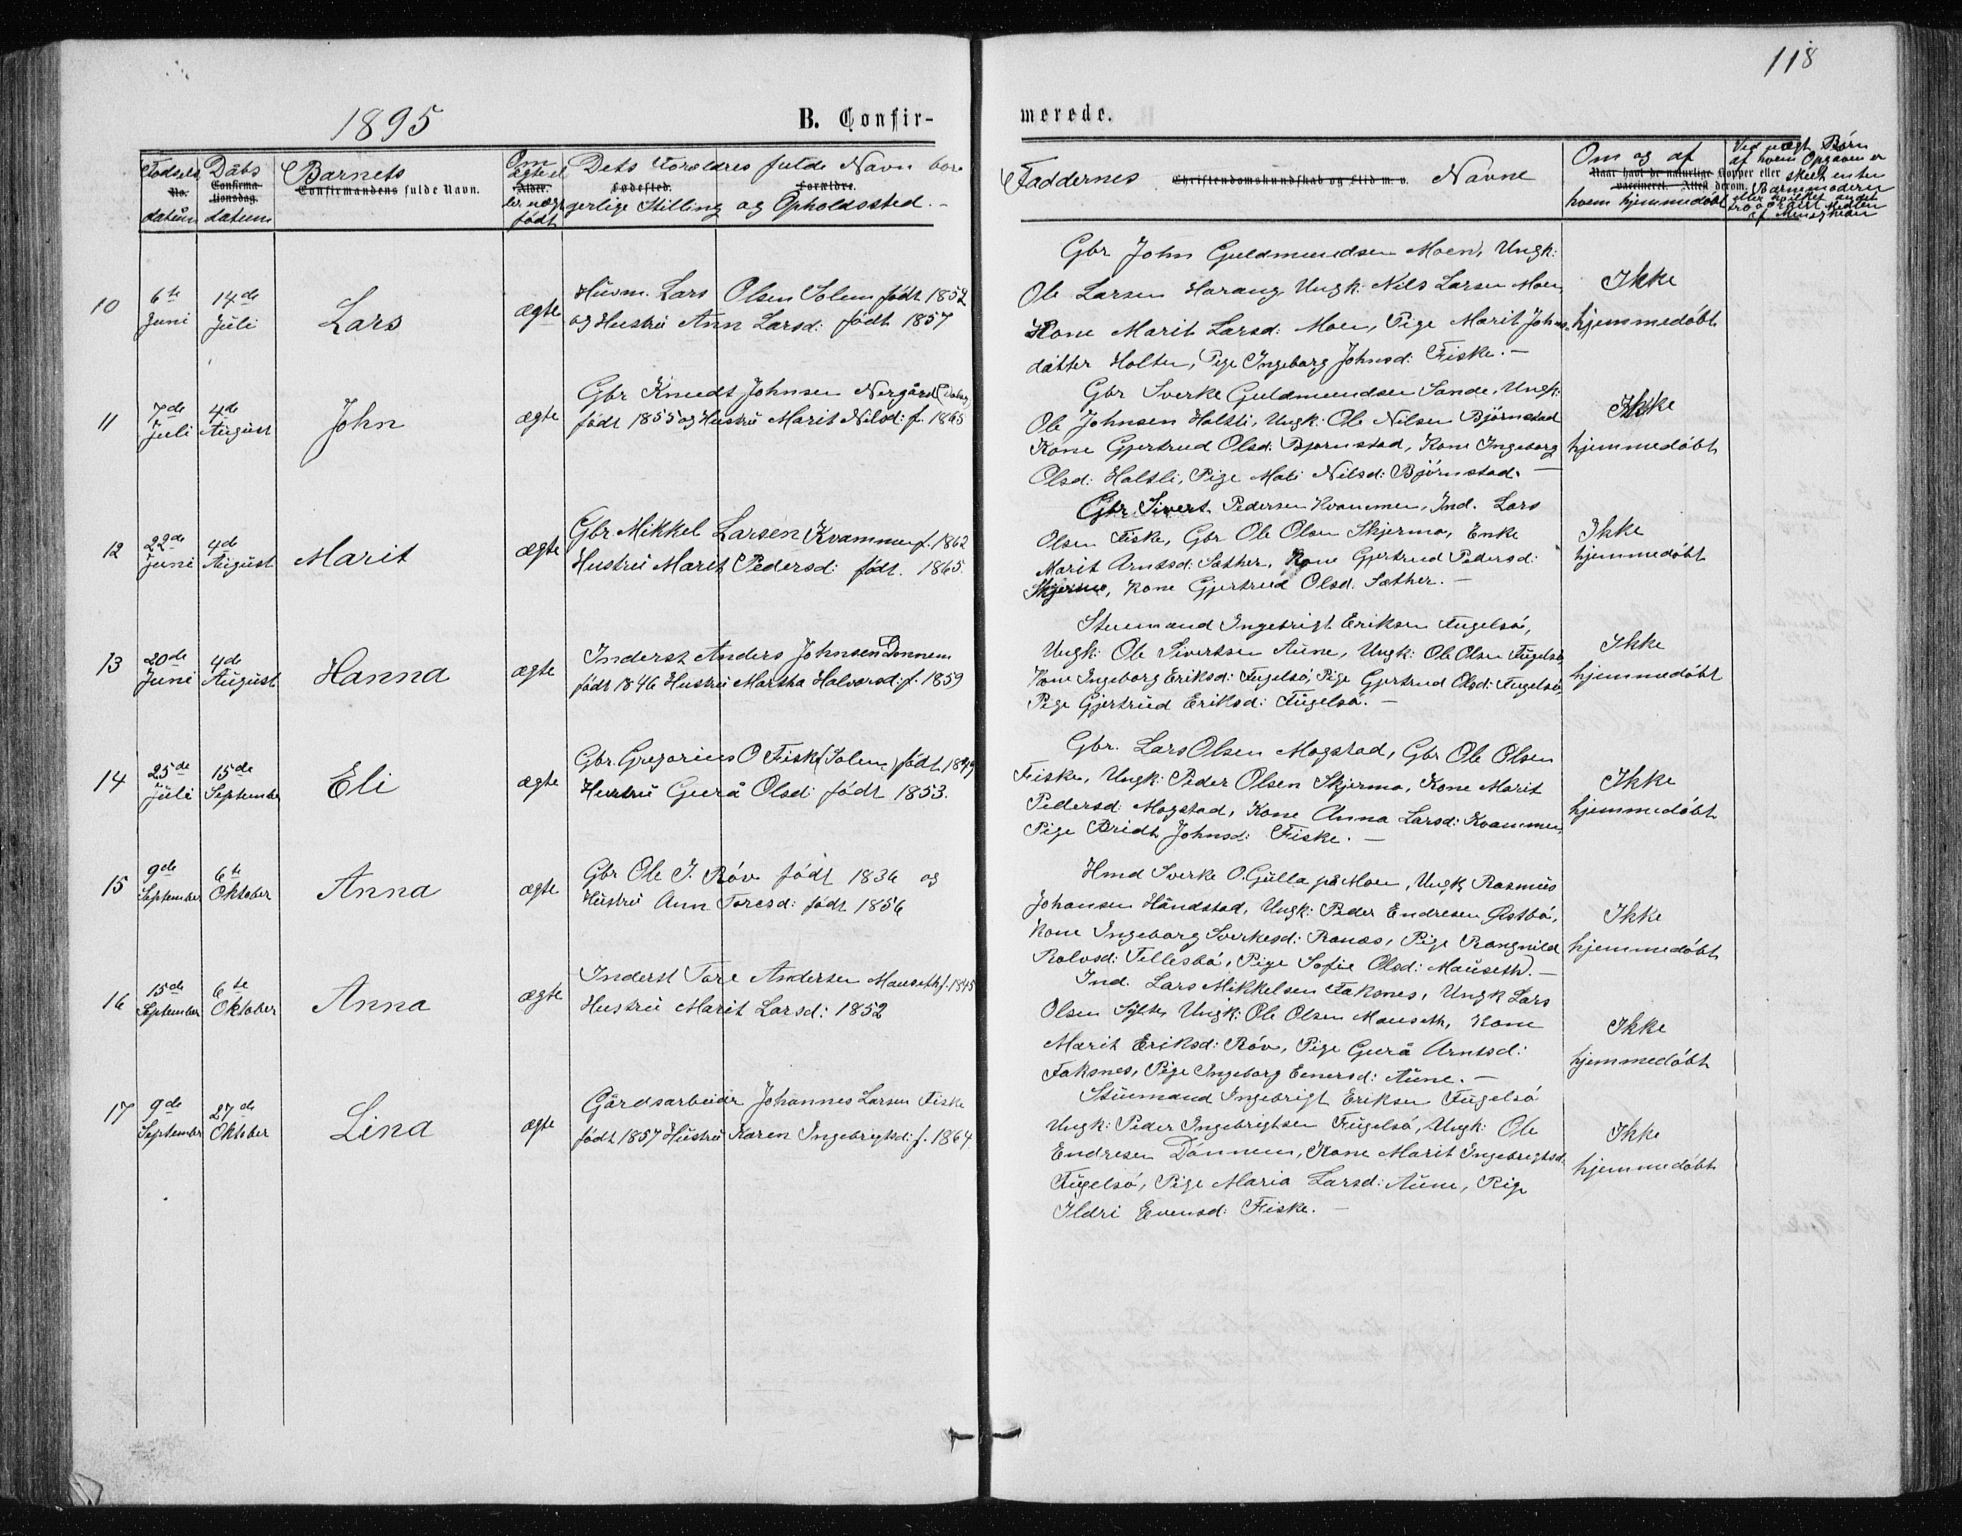 118
1895
B. Confir-
merede.
Fødsels
No.
datum
Dåbs
Confirma-
tionsdag.
datum
Barnets
Confirmandens fulde Navn.
Om
ægte el
Alder.
ler uægt
født
Dets Forældres fulde Navn bor
Fødested. Forældre.
gerlige Stilling og Opholdssted. -
Faddernes Christendomskundskab og Flid m. v. Navne
Om og af
Naar havt de naturlige Kopper eller
vaccineret. Attest derom.
hvem hjemmedøbt
Ved uægt. Børn
af hvem Opgaven er
skeet enten
Barnemoderen
eller hvilket andet
troværdigt Medlem
af Menigheden
10
6te
Juni
14de
Juli
Lars
ægte
Huvm. Lars Olsen Solem født 1852
og Hustru Ann Larsd: født 1857
Gbr John Guldmundsen Moen, Ungk:
Ole Larsen Harang Ungk: Nils Larsen Moen,
Kone Marit Larsd: Moen, Pige Marit Johns-
datter Holten, Pige Ingeborg Johnsd: Fiske. -
Ikke
hjemmedøbt
11
7de
Juli
4de
August
John
ægte
Gbr Knudt Johnsen Nergård
født 1855 og Hustru Marit Nilsd: f. 1865
Gbr Sverke Guldmundsen Sande, Ungk:
Ole Johnsen Holsli, Ungk: Ole Nilsen Bjørnstad
Kone Gjertrud Olsd: Bjørnstad, Kone Ingeborg
Olsd: Holsli, Pige Mali Nilsd: Bjørnstad. -
Ikke
hjemmedøbt
12
22de
Juni
4de
August
Marit
ægte
Gbr. Mikkel Larsen Kvammen f. 1862
Hustru Marit Pedersd: født. 1865.
Gbr Sivert Pedersen Kvammen, Ind. Lars
Olsen Fiske, Gbr Ole Olsen Skjermo, Enke
Marit Arntsd: Sæther, Kone Gjertrud Pedersd:
Skjermo, Kone Gjertrud Olsd. Sæther. -
Ikke
hjemmedøbt
13
20de
Juni
4de
August
Hanna
ægte
Inderst Anders Johnsen Dønnem
født 1846 Hustru Martha Halvorsd: f. 1859
Stuemand Ingebrigt Eriksen Fugelsø,
Ungk: Ole Sivertsen Aune, Ungk: Ole Olsen Fugelsø,
Kone Ingeborg Eriksd: Fugelsø, Pige Gjertrud Olsd: Fugelsø,
Pige Gjertrud Eriksd: Fugelsø. -
Ikke
hjemmedøbt
14
25de
Juli
15de
September
Eli
ægte
Gbr. Gregorius O Fiske (Solem) født 1849
Hustru Gurå Olsd: født 1853.
Gbr. Lars Olsen Mogstad, Gbr Ole Olsen
Fiske, Ungk: Peder Olsen Skjermo, Kone Marit
Pedersd: Mogstad, Kone Anna Larsd: Kvammen,
Pige Bridt Johnsd: Fiske. -
Ikke
hjemmedøbt
15
9de
September
6te
Oktober
Anna
ægte
Gbr Ole J. Røv født 1836 og
Hustru Ann Toresd: født 1856
Hmd Sverke O. Gulla på Moen, Ungk Rasmus
Johansen Håndstad, Ungk: Peder Endresen Østbø,
Kone Ingeborg Sverkesd: Ranæs, Pige Rangnild
Rolvsd: Tellesbø, Pige Sofie Olsd: Mauseth. -
Ikke
hjemmedøbt
16
15de
September
6te
Oktober
Anna
ægte
Inderst Tore Andersen Mauseth f. 1845
Hustru Marit Larsd: 1852
Ind. Lars Mikkelsen Faksnes, Ungk Lars
Olsen Sylte, Ungk: Ole Olsen Mauseth, Kone
Marit Eriksd: Røv, Pige Gurå Arntsd:
Faksnes, Pige Ingeborg Einersd: Aune. -
Ikke
hjemmedøbt
17
9de
September
27de
Oktober
Lina
ægte
Gårdsarbeider Johannes Larsen Fiske
født 1857 Hustru Karen Ingebrigtsd: f. 1864
Stuemand Ingebrigt Eriksen Fugelsø
Ungk: Peder Ingebrigtsen Fugelsø, Ungk: Ole
Endresen Dønnem, Kone Marit Ingebrigtsd:
Fugelsø, Pige Maria Larsd: Aune, Pige
Ildri Evensd: Fiske. -
Ikke
hjemmedøbt